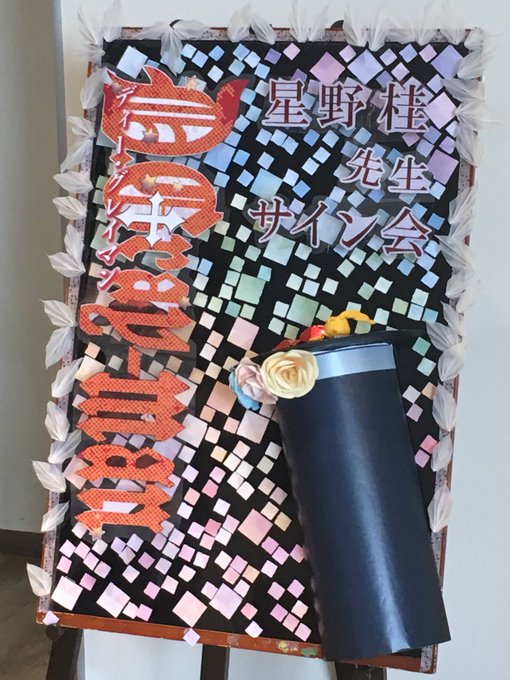 星野桂
先生
サイン会
D.Gray-man
ディー・グレイマン